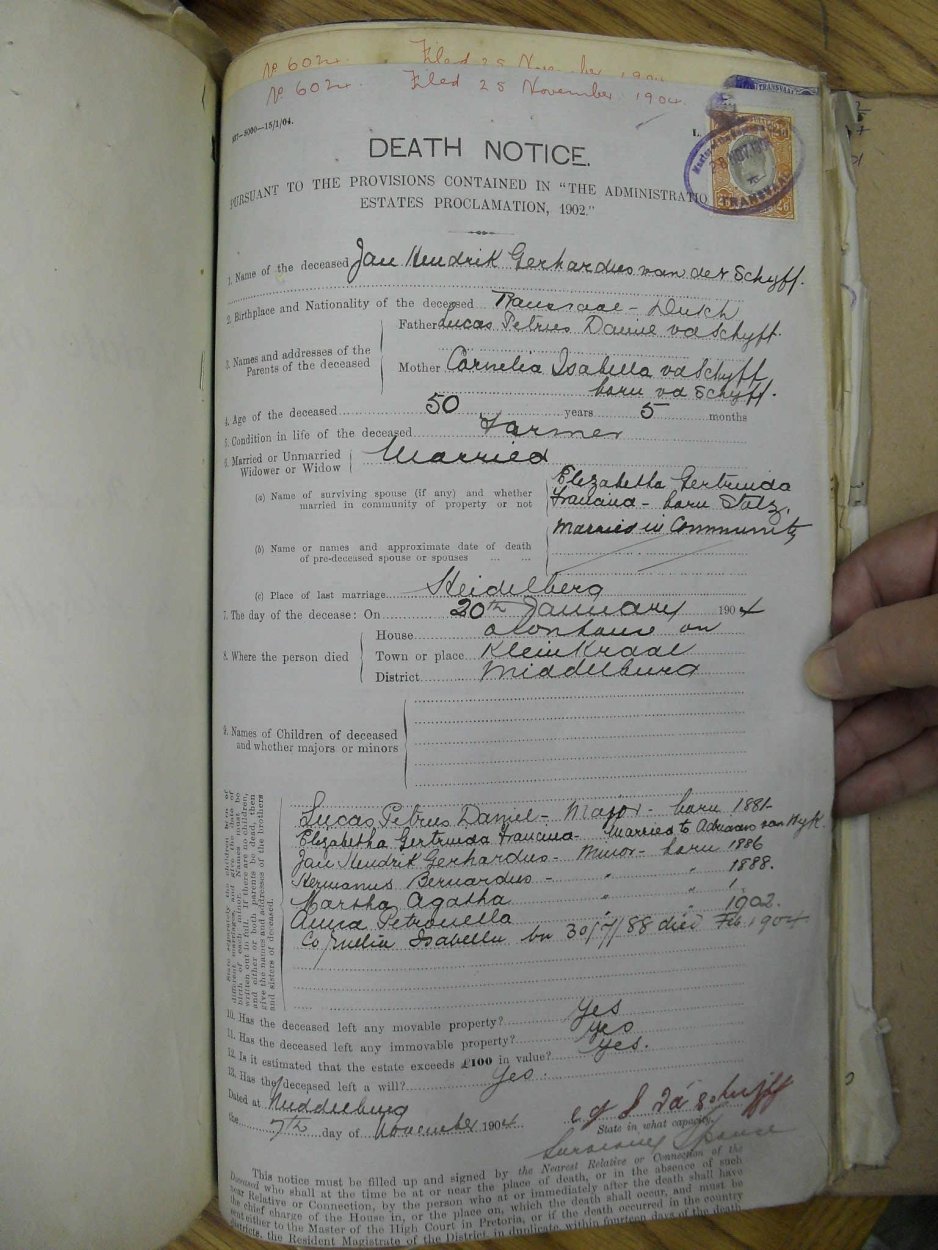 No 6024. Filed 28 November 1904
No 6024. Filed 28 November 1904.
5000—15/1/04.
DEATH NOTICE.
PURSUANT TO THE PROVISIONS CONTAINED IN "THE ADMINISTRATIO
ESTATES PROCLAMATION, 1902."
1. Name of the deceased Jan Hendrik Gerhardus van der Schyff.
2. Birthplace and Nationality of the deceased Transvaal - Dutch
3. Names and addresses of the Parents of the deceased
Father Lucas Petrus Daniel vd Schyff
Mother Cornelia Isabella vd Schyff
born vd Schyff.
4. Age of the deceased 50 years 5 months
5. Condition in life of the deceased Farmer
6. Married or Unmarried Widower or Widow Married
(a) Name of surviving spouse (if any) and whether married in community of property or not
Elizabetha Gertruida
born
Married in Community
(b) Name or names and approximate date of death of pre-deceased spouse or spouses ... ...
(c) Place of last marriage Heidelberg
7. The day of the decease: On 20th January 1904
8. Where the person died
House on
Town or place KleinKraal
District Middelburg
9. Names of Children of deceased and whether majors or minors
State separately the children born of different marriages, and give the date of birth of each minor. Names must be written out in full. If there are no children, and either or both parents be dead, then give the names and addresses of the brothers and sisters of deceased.
Lucas Petrus Daniel - Major - born 1881
Elizabetha Gertruida - Married to Adriaan van Wyk.
Jan Hendrik Gerhardus - Minor - born 1886
Hermanus Bernardus - " " 1888.
Martha Agatha " "
Anna Petronella " " 1902.
Cornelia Isabella bn 30/7/88 died Feb. 1904
10. Has the deceased left any movable property? Yes
11. Has the deceased left any immovable property? Yes
12. Is it estimated that the estate exceeds £100 in value? Yes.
13. Has the deceased left a will? Yes.
Dated at Middelburg
the 7th day of November 1904
State in what capacity.
Surviving Spouse
This notice must be filled up and signed by the Nearest Relative or Connection of the
Deceased who shall at the time be at or near the place of death, or in the absence of such
near Relative or Connection, by the person who at or immediately after the death shall have
the chief charge of the House in, or the place on, which the death shall occur, and must be
sent either to the Master of the High Court in Pretoria, or if the death occurred in the country
districts, the Resident Magistrate of the District, in duplicate within fourteen days of the death
TRANSVAAL
TRANSVAAL